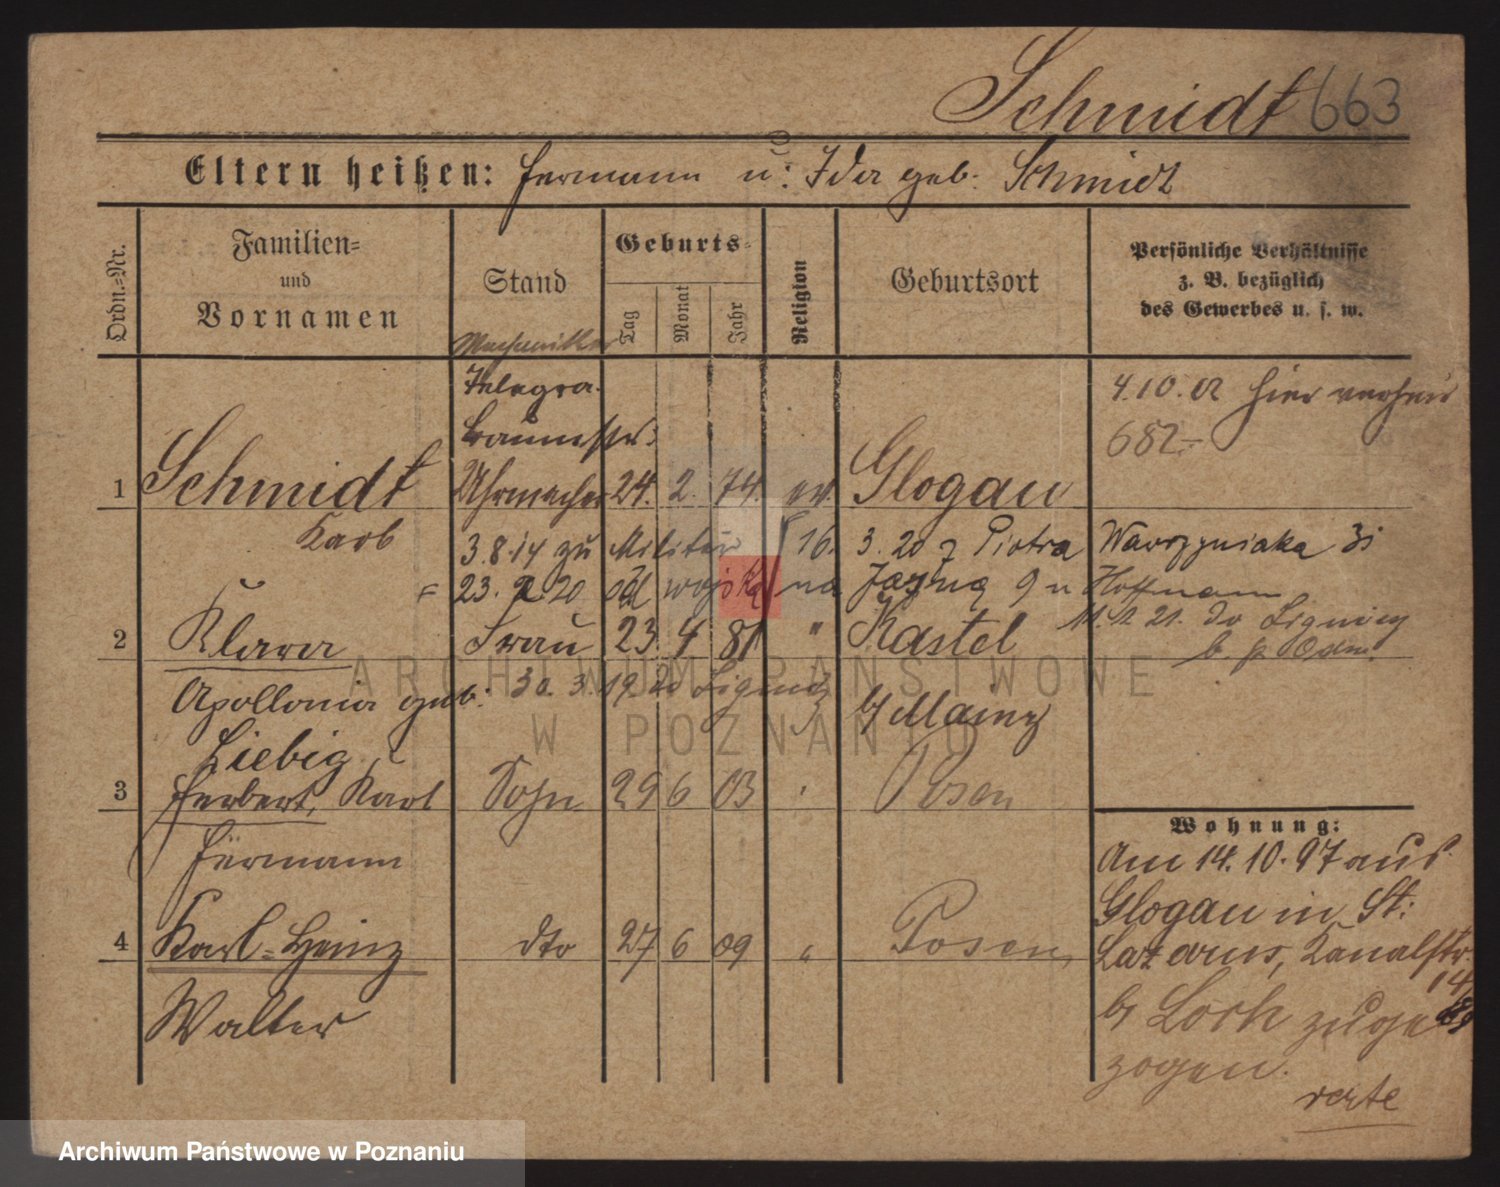 Schmidt 663
Eltern heißen: Hermann u: Ida geb. Schmidt
Ordn.-Nr.
Familien-
und
Vornamen
Stand
Geburts-
Tag
Monat
Jahr
Religion
Geburtsort
Persönliche Verhältnisse
z. B. bezüglich
des Gewerbes u. s. w.
Mechaniker
Telegra.
4.10.02 hier verheir
682.-
1 Schmidt Uhrmacher 24. 2. 74. ev. Glogau
Karl
3.8.14 zu Militär 16. 3. 20 z Piotra Wawrzyniaka 31
= 23. 2. 20 od wojska na Jasną 9 u Hoffmann
11. 1. 21. do Lignicy
2 Klara Frau 23. 4 81 " Kastel
Apollonia geb. 30. 3. 19 20 Lignitz b/ Mainz
Liebig
3 Herbert, Karl Sohn 29 6 03 Posen
Hermann
4 Karl-Heinz dto 27 6 09 " Posen
Walter
Wohnung:
Am 14. 10. 97 aus
Glogau in St:
Lazarus, Kanalstr.
14/
b/ Loch zuge
zogen.
verte
ARCHIWUM PAŃSTWOWE
W POZNANIU
Archiwum Państwowe w Poznaniu